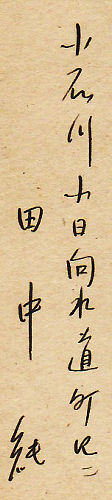 小石川小日向水道町九二
田中純